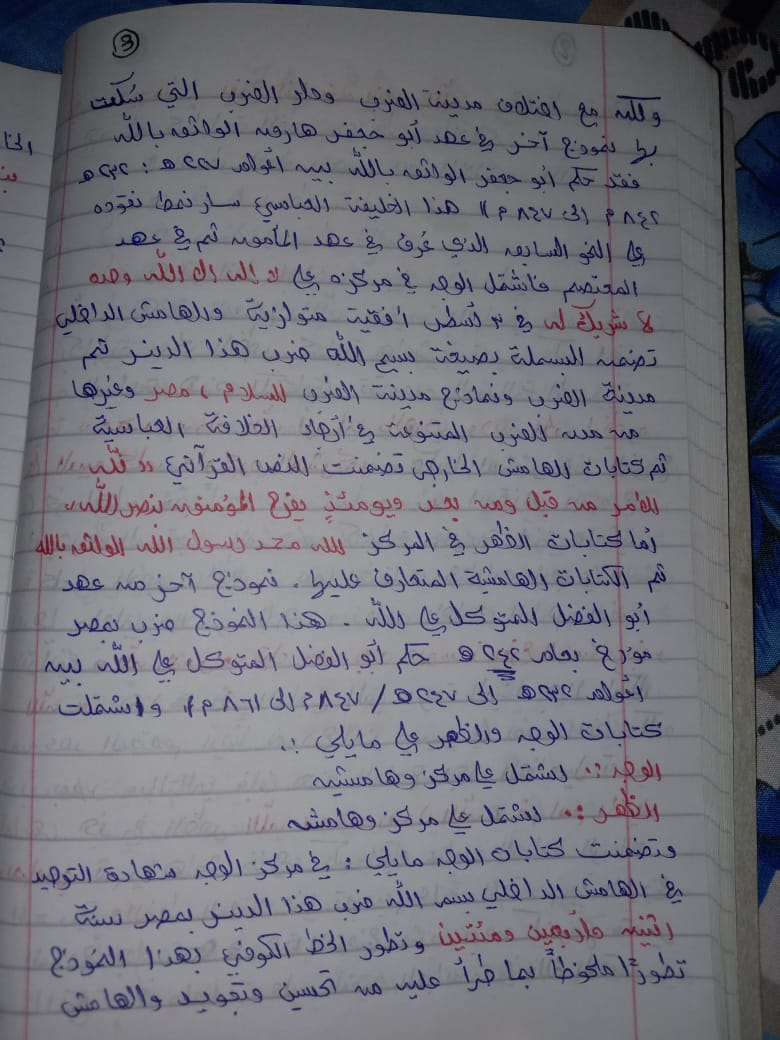 3
ولكن مع اختلاف مدينة الضرب ودار الضرب التي سُكت
بها نموذج آخر في عهد أبو جعفر هارون الواثق بالله
فقد حكم أبو جعفر الواثق بالله بين أعوام ٢٢٧ هـ : ٢٣٢ هـ
٨٤٢م إلى ٨٤٧م)) هذا الخليفة العباسي سار نمط نقوده
علي النحو السابق الذي عُرف في عهد المأمون ثم في عهد
المعتصم فاشتمل الوجه في مركزه علي لا إله إلا الله وحده
لا شريك له في ٣ أسطر أفقية متوازية والهامش الداخلي
تضمن البسملة بصيغة بسم الله ضرب هذا الدينر ثم
مدينة الضرب ونماذج مدينة الضرب السلام، مصر وغيرها
من مدن الضرب المتنوعة في أرجاء الخلافة العباسية
ثم كتابات الهامش الخارجى تضمنت النص القرآني "لله
الأمر من قبل ومن بعد ويومئذٍ يفرح المؤمنون بنصر الله"
أما كتابات الظهر في المركز لله محمد رسول الله الواثق بالله
ثم الكتابات الهامشية المتعارف عليها. نموذج آخر من عهد
أبو الفضل المتوكل علي الله. هذا النموذج ضرب بمصر
مؤرخ بعام ٢٤٢ هـ حكم أبو الفضل المتوكل علي الله بين
أعوام ٢٣٢ هـ إلى ٢٤٧ هـ / ٨٤٧م إلى ٨٦١م) واشتملت
كتابات الوجه والظهر علي ما يلي :.
الوجه :. يشتمل علي مركز وهامشين
الظهر :. يشتمل علي مركز وهامش
وتضمنت كتابات الوجه مايلي : في مركز الوجه شهادة التوحيد
في الهامش الداخلي بسم الله ضرب هذا الدينر بمصر سنة
اثنين وأربعين ومئتين وتطور الخط الكوفي بهذا النموذج
تطورًا ملحوظاً بما طرأ عليه من تحسين وتجويد والهامش